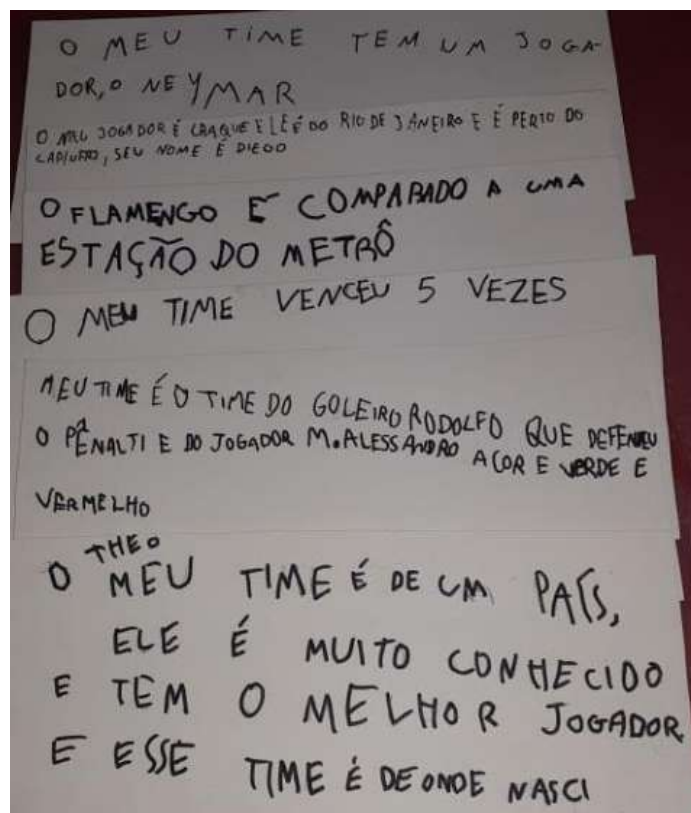 O MEU TIME TEM UM JOGA-
DOR, O NEYMAR
O MEU JOGADOR É CRAQUE E LE É DO RIO DE JANEIRO E É PERTO DO
SEU NOME É DIEGO
O FLAMENGO E COMPARADO A UMA
ESTAÇÃO DO METRÔ
O MEU TIME VENCEU 5 VEZES
MEU TIME É O TIME DO GOLEIRO RODOLFO QUE DEFENDEU
O PÊNALTI E DO JOGADOR M. ALESSANDRO A COR E VERDE E
VERMELHO
THEO
O MEU TIME É DE UM PAÍS,
ELE É MUITO CONHECIDO
E TEM O MELHOR JOGADOR
E ESSE TIME É DE ONDE NASCI